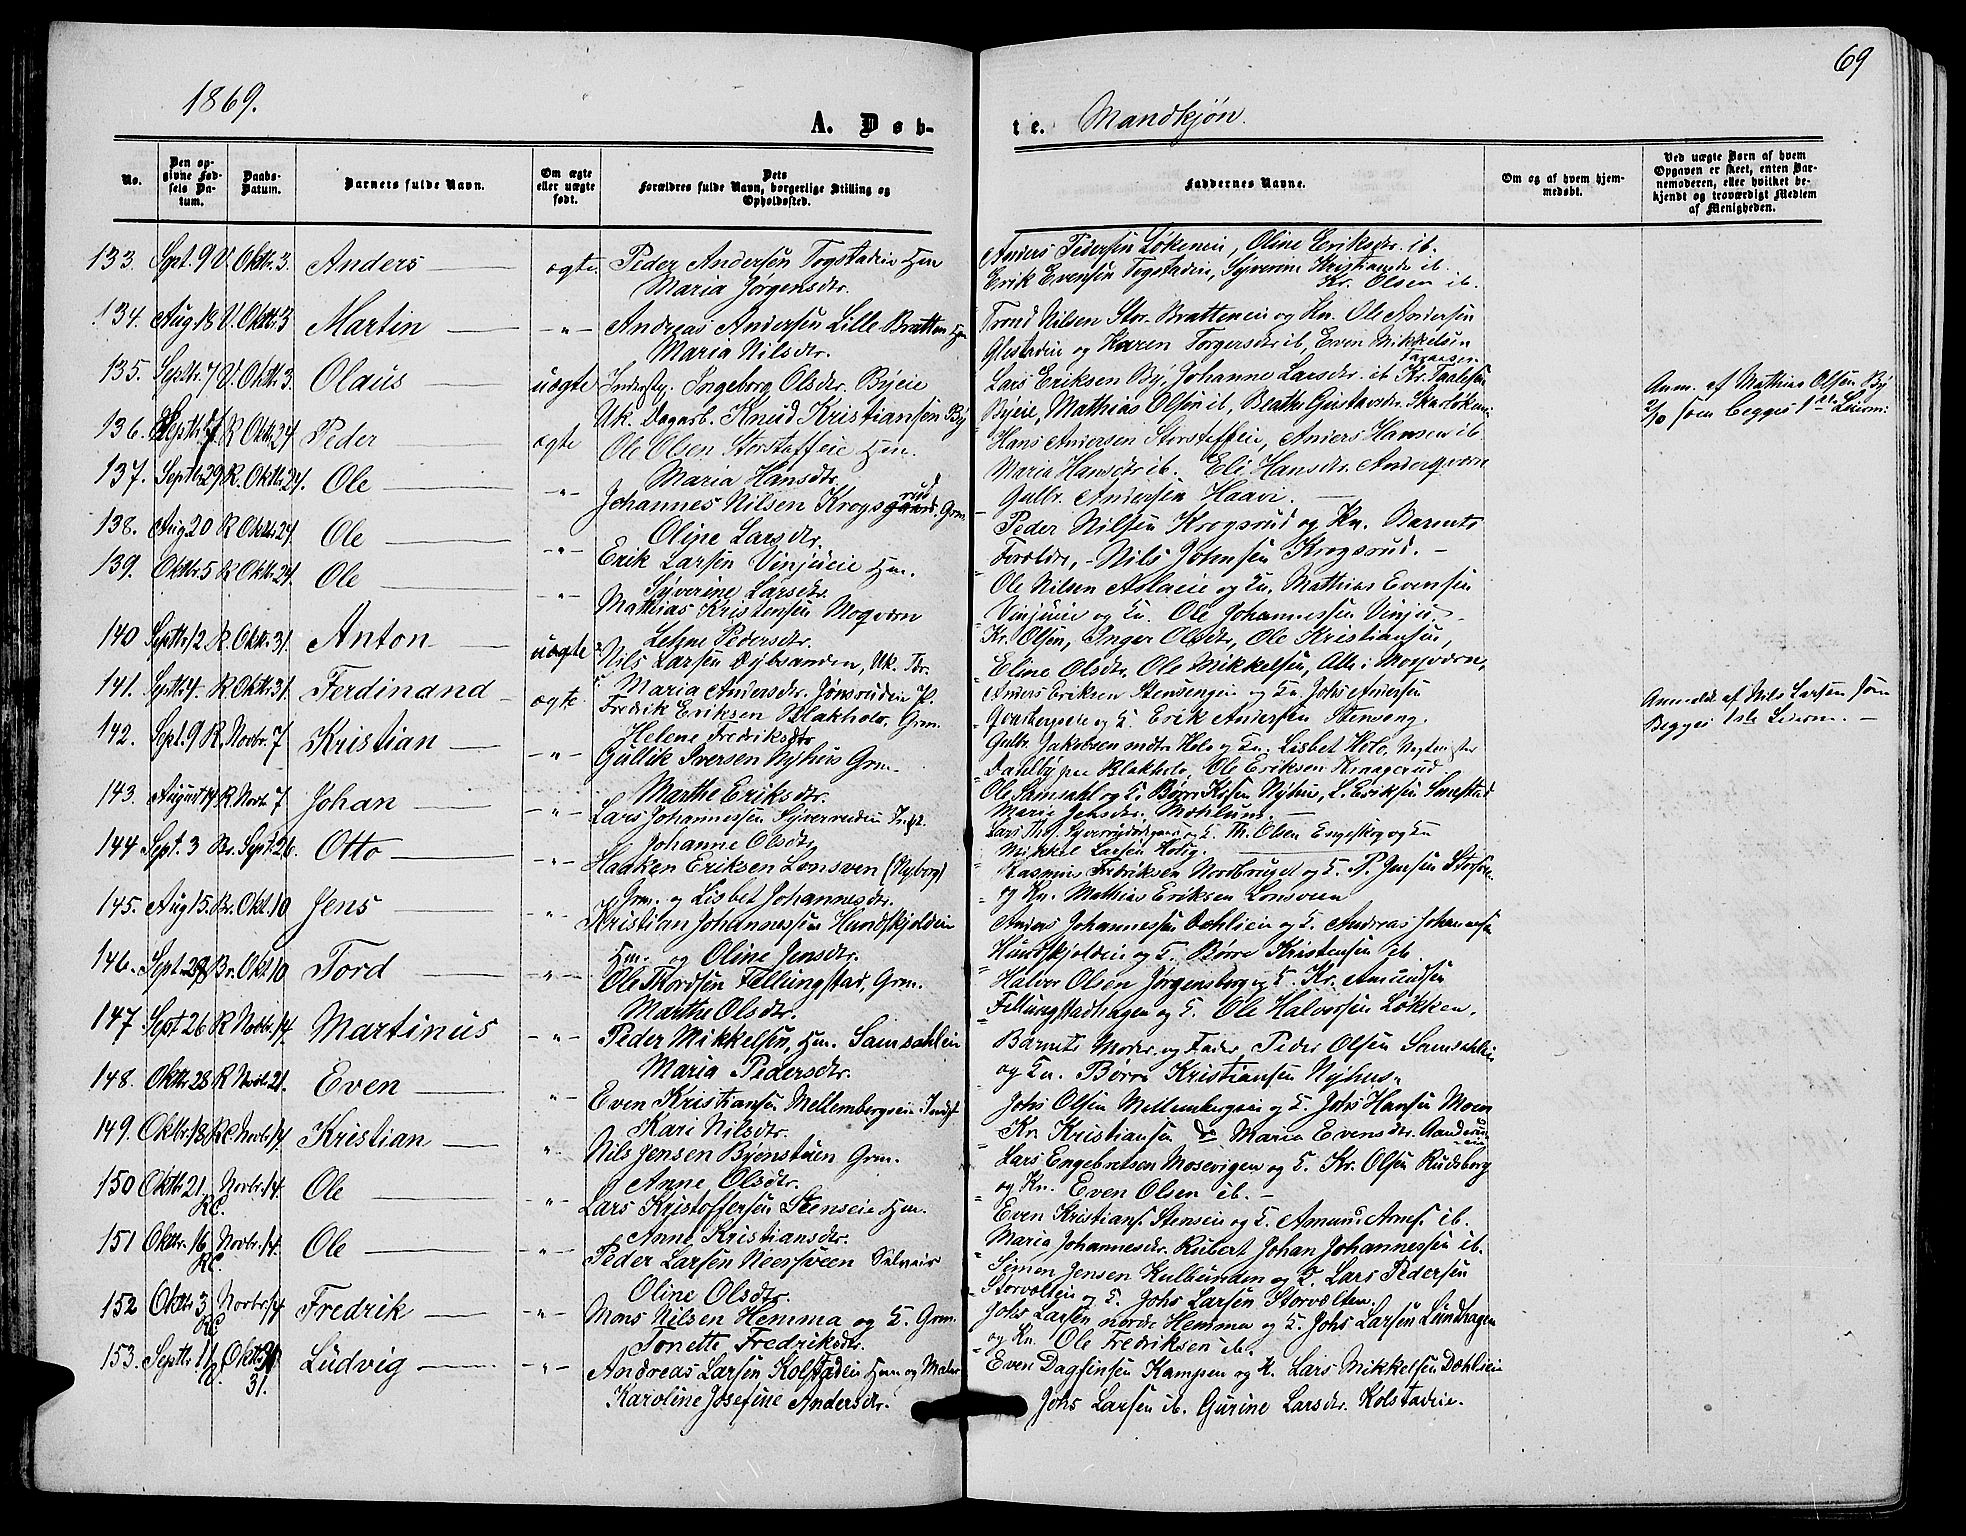 69
1869.
A. Døb-
te.
Mandkjøn.
No.
Den op-
givne Fød-
sels Da-
tum.
Daabs-
Datum.
Barnets fulde Navn.
Om ægte
eller uægte
født.
Dets
Forældres fulde Navn, borgerlige Stilling og
Opholdssted.
Faddernes Navne.
Om og af hvem hjem-
medøbt.
Ved uægte Børn af hvem
Opgaven er skeet, enten Bar-
nemoderen, eller hvilket be-
kjendt og troværdigt Medlem
af Menigheden.
133. Sept. 9 V. Oktbr. 3. Anders ægte Peder Andersen Togstadeie Hm
Maria Jørgensdr.
Anders Pedersen Løkeneie, Oline Eriksdr. ib.
Erik Evensen Togstadeie, Syverine Kristiansdr ib.
Kr. Olsen ib.
134. Aug 18 V. Oktbr. 3 Martin -"- Andreas Andersen Lille Bratten Hm
Maria Nilsdr.
Trond Nilsen Stor-Bratteneie og Kn. Ole Andersen
Glestadeie og Karen Torgersdr ib, Even Mikkelsen
135. Septbr. 7 V. Oktbr. 3. Olaus uægte Inderst. Ingeborg Olsdr. Byeie
Uk. Dagarb. Knud Kristiansen By
Lars Eriksen By, Johanne Larsdr. ib Kr. Paalesen
Byeie, Mathias Olsen ib, Beathe Gustavsdr. Skarløken
Anm. af Mathias Olsen By
2/10 som begges 1ste Leierm:
136. Septbr. R Oktbr 24 Peder ægte Ole Olsen Storstaffeie Hm.
Maria Hansdtr.
Hans Andersen Storstaffeie, Anders Hansen ib
Maria Hansdr ib. Eli Hansdr. Anderqværn
137. Septbr. 29 R. Oktbr. 24. Ole -"- Johannes Nilsen Krogsrud. Grm.
Oline Larsdtr.
Gulbr. Andersen Haavi.
Peder Nilsen Krogsrud og Kn. Barnets
138. Aug 20 R Oktbr. 24. Ole -"- Erik Larsen Vinjueie Hm.
Syverine Larsdr.
Forældre, - Nils Johnsen Krogsrud. -
Ole Nilsen Aslaeie og Kn. Mathias Evensen
139. Oktbr. 5 R Oktbr 24. Ole -"- Mathias Kristensen Moqværn
Lehne Pedersdtr.
Vinjueie og Kn. Ole Johannessen Vinju.
Kr. Olsen, Inger Olsdr, Ole Kristiansen,
140 Septbr 12 R. Oktbr. 31. Anton uægte Nils Larsen Dybsanden, Uk.
Maria Andersdr. Jønsrudeie P.
Eline Olsdr, Ole Mikkelsen, Alle i Moqværn,
141. Septbr 4 R Oktbr 31. Ferdinand ægte Fredrik Eriksen Blakholo, Grm.
Helene Fredriksdtr
Anders Eriksen Stensengen og Kn. Johs Andersen
og K. Erik Andersen Stenseng.
Anmeldt af Nils Larsen som
Begges 1ste Leierm. -
142. Sept. 9 R. Novbr. 7 Kristian -"- Gullik Iversen Nyhus Grm.
Marthe Eriksdtr.
Gulbr. Jakobsen Holo og Kn. Lisbet Holo,
Dahlby paa Blakholo, Ole Eriksen Kraagerud
143. August 14 R. Novb. 7 Johan -"- Lars Johannessen Syverrudeie Indst.
Johanne Olsdtr,
Ole Samsahl og K. Børre Nyhus, L. Eriksen
Marie Jensdtr. Mohlum.
144 Sept. 3 Br. Sept. 26. Otto -"- Haaken Eriksen Lonsven (Nyborg)
Grm. og Lisbet Johannesdr.
og K. Th. Olsen Engeskog og Kn
Mikkel Larsen
Rasmus Fredriksen Nordbruget og K. P. Jensen
og Kn. Mathias Eriksen Lonsveen
145. Aug 15. Br. Okt. 10 Jens -"- Kristian Johannessen Hundskjoldeie
Hm. og Oline Jensdtr.
Anders Johannessen Dæhlieie og K. Andreas Johannesen
Hundskjoldeie og K. Børre Kristensen ib.
146. Sept 28 Br. Okt 10 Tord -"- Ole Thordsen Fællingstad, Grm.
Marthe Olsdr.
Halvor Olsen Jørgensberg og K. Kr. Amundsen
Fellingstadhagen og K. Ole Halvorsen Løkken,
147 Sept 26 R Novbr. 14. Martinus -"- Peder Mikkelsen, Hm. Samsahleie
Maria Pedersdtr.
Barnets Moder og Fader, Peder Olsen Samsahleie
og Kn. Børre Kristiansen Nyhus
148. Oktbr 28 R Novb 21. Even -"- Even Kristiansen Mellembergseie Indst
Kari Nilsdtr.
Johs Olsen Mellembergseie og K. Johs Hansen Moen
Kr. Kristiansen Maria Evensdtr.
149. Oktbr. 18 RC Novbr. 14 Kristian -"- Nils Jensen Byenstuen Grm.
Anne Olsdtr.
Lars Engebretsen Mosevigen og K. Kr. Olsen Rudsberg
og Kn. Even Olsen ib. -
150 Oktbr. 21 RC. Novbr. 14. Ole -"- Lars Kristoffersen Stenseie Hm.
Anne Kristiansdtr.
Even Kristians. Stenseie og K. Amund Arnes. ib.
Maria Johannesdtr. Rubert, Johan Johannessen ib.
151 Oktbr. 16 RC. Novbr. 14. Ole -"- Peder Larsen Neersveen Selveier
Oline Olsdtr.
Simen Jensen Kulbunden og K. Lars Pedersen
Storvolteie og K. Johs Larsen Storvolten.
152 Oktbr 3 RC Novbr. 14 Fredrik -"- Mons Nilsen Hemma og K. Grm.
Tonette Fredriksdtr.
Johs Larsen nordre Hemma og K. Johs Larsen Lundhagen
og Kn. Ole Fredriksen ib.
153. Septbr. 11 R. Oktbr. 31. Ludvig -"- Andreas Larsen Kolstadeie Hm og Maler
Karoline Josefine Andersdtr.
Even Dagfinsen Kampen og K. Lars Mikkelsen Dæhlieie
Johs Larsen ib. Gurine Larsdr. Kolstadeie.